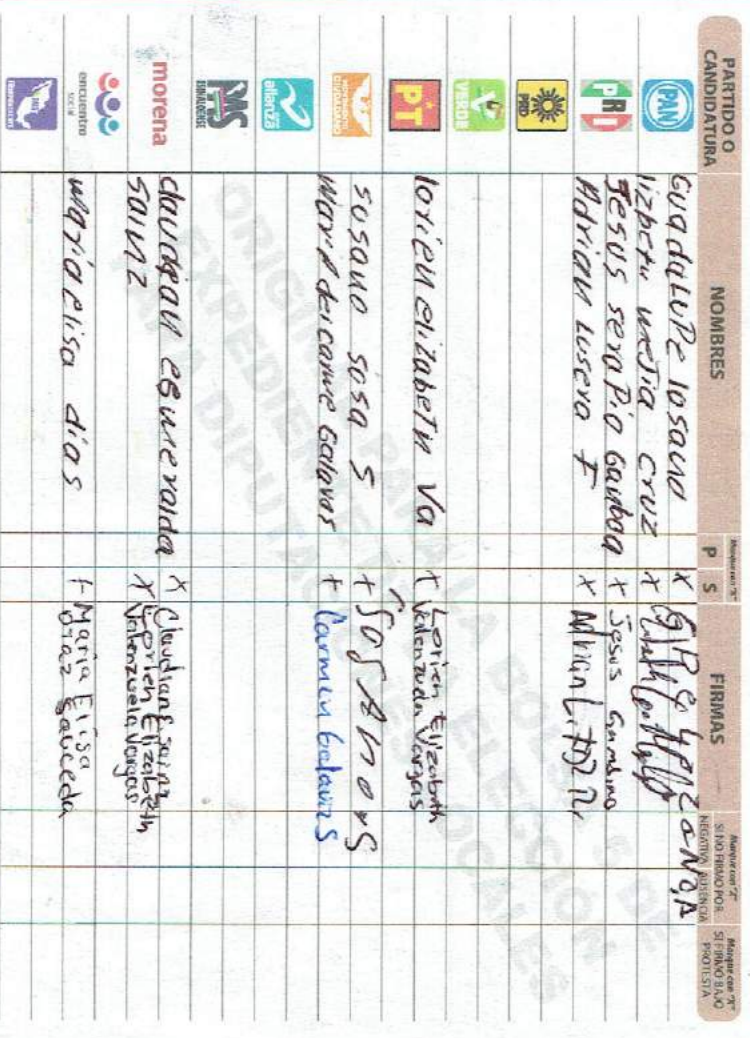 PARTIDO O
CANDIDATURA
NOMBRES
Marque con "X"
P S
FIRMAS
Marque con "X"
SI NO FIRMÓ POR
NEGATIVA AUSENCIA
Marque con "X"
SI FIRMÓ BAJO
PROTESTA
PAN
GuadaluPe losano X
lizbetu mejia cruz X
PRI
Jesus seraPio Gamboa + Jesus Gamboa
Adrian Lusero F X
PRD
VERDE
PT
lorien elizabeth Va + Lorien Elizabeth
Valenzuela Vargas
MOVIMIENTO
CIUDADANO
sosano sosa S +
Mari delcarme Galavas + Carmen Galavis
alianza
PAS
SINALOENSE
morena
claudean esmeralda X Claudian E Sainz
sainz X Lorien Elizabeth
Valenzuela Vargas
encuentro
SOCIAL
maria elisa dias + Maria Elisa
Diaz Sauceda
ORIGINAL PARA LA BOLSA DE
EXPEDIENTE DE LA ELECCIÓN
PARA DIPUTACIONES LOCALES